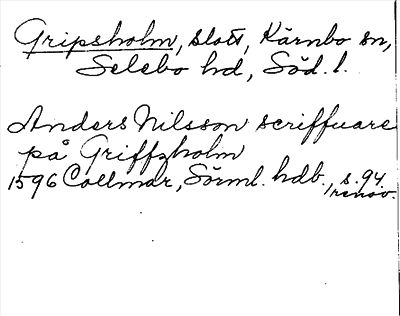 Gripsholm, slott, Kärnbo sn,
Selebo hd, Söd. l.
Anders Nilsson scriffuare
på Griffzholm
1596 Collmar, Sörml. hdb., s. 94
renov.